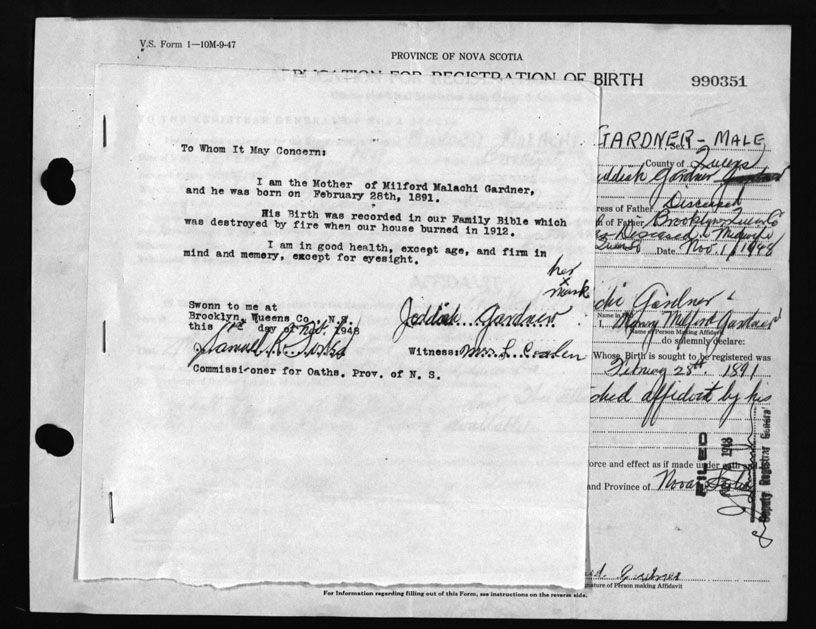 V.S. Form 1—10M-9-47
PROVINCE OF NOVA SCOTIA
APPLICATION FOR REGISTRATION OF BIRTH
990351
To Whom It May Concern:
I am the Mother of Milford Malachi Gardner,
and he was born on February 28th, 1891.
His Birth was recorded in our Family Bible which
was destroyed by fire when our house burned in 1912.
I am in good health, except age, and firm in
mind and memory, except for eyesight.
her
x
mark
Swonn to me at
Brooklyn, Queens Co., N.S.
this day of 1948
Jeddiah Gardner
Samuel R.
Witness: Mrs. L
Commissioner for Oaths. Prov. of N. S.
GARDNER - MALE
Sex
County of Queens
Jeddiah Gardner
ress of Father Deceased
of Father Brooklyn Queens Co
Deceased Midwife
Date Nov. 1/1948
Gardner
Name in
I, Milford Gardner
Name of Person Making Affidavit
do solemnly declare:
Whose Birth is sought to be registered was
February 28th 1891
affidavit by his
force and effect as if made under oath
and Province of Nova Scotia
FILED
1948
Deputy Registrar General
Gardner
Signature of Person making Affidavit
For Information regarding filling out of this Form, see instructions on the reverse side.